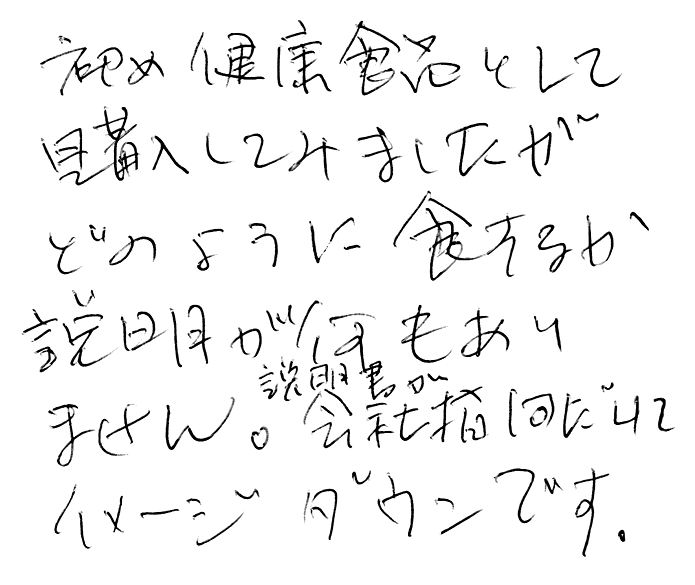 初め健康食品として
購入してみましたが
どのように食するか
説明が何もあり
ません。
説明書が
イメージダウンです。